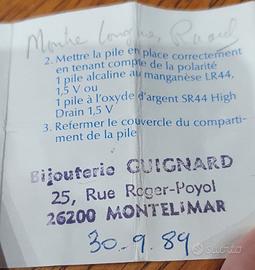 Montre
2. Mettre la pile en place correctement
en tenant compte de la polarité
1 pile alcaline au manganèse LR44,
1,5 V ou
1 pile à l'oxyde d'argent SR44 High
Drain 1,5 V
3. Refermer le couvercle du comparti-
ment de la pile
Bijouterie GUIGNARD
25, Rue Roger-Poyol
26200 MONTELIMAR
30-9.89
subito